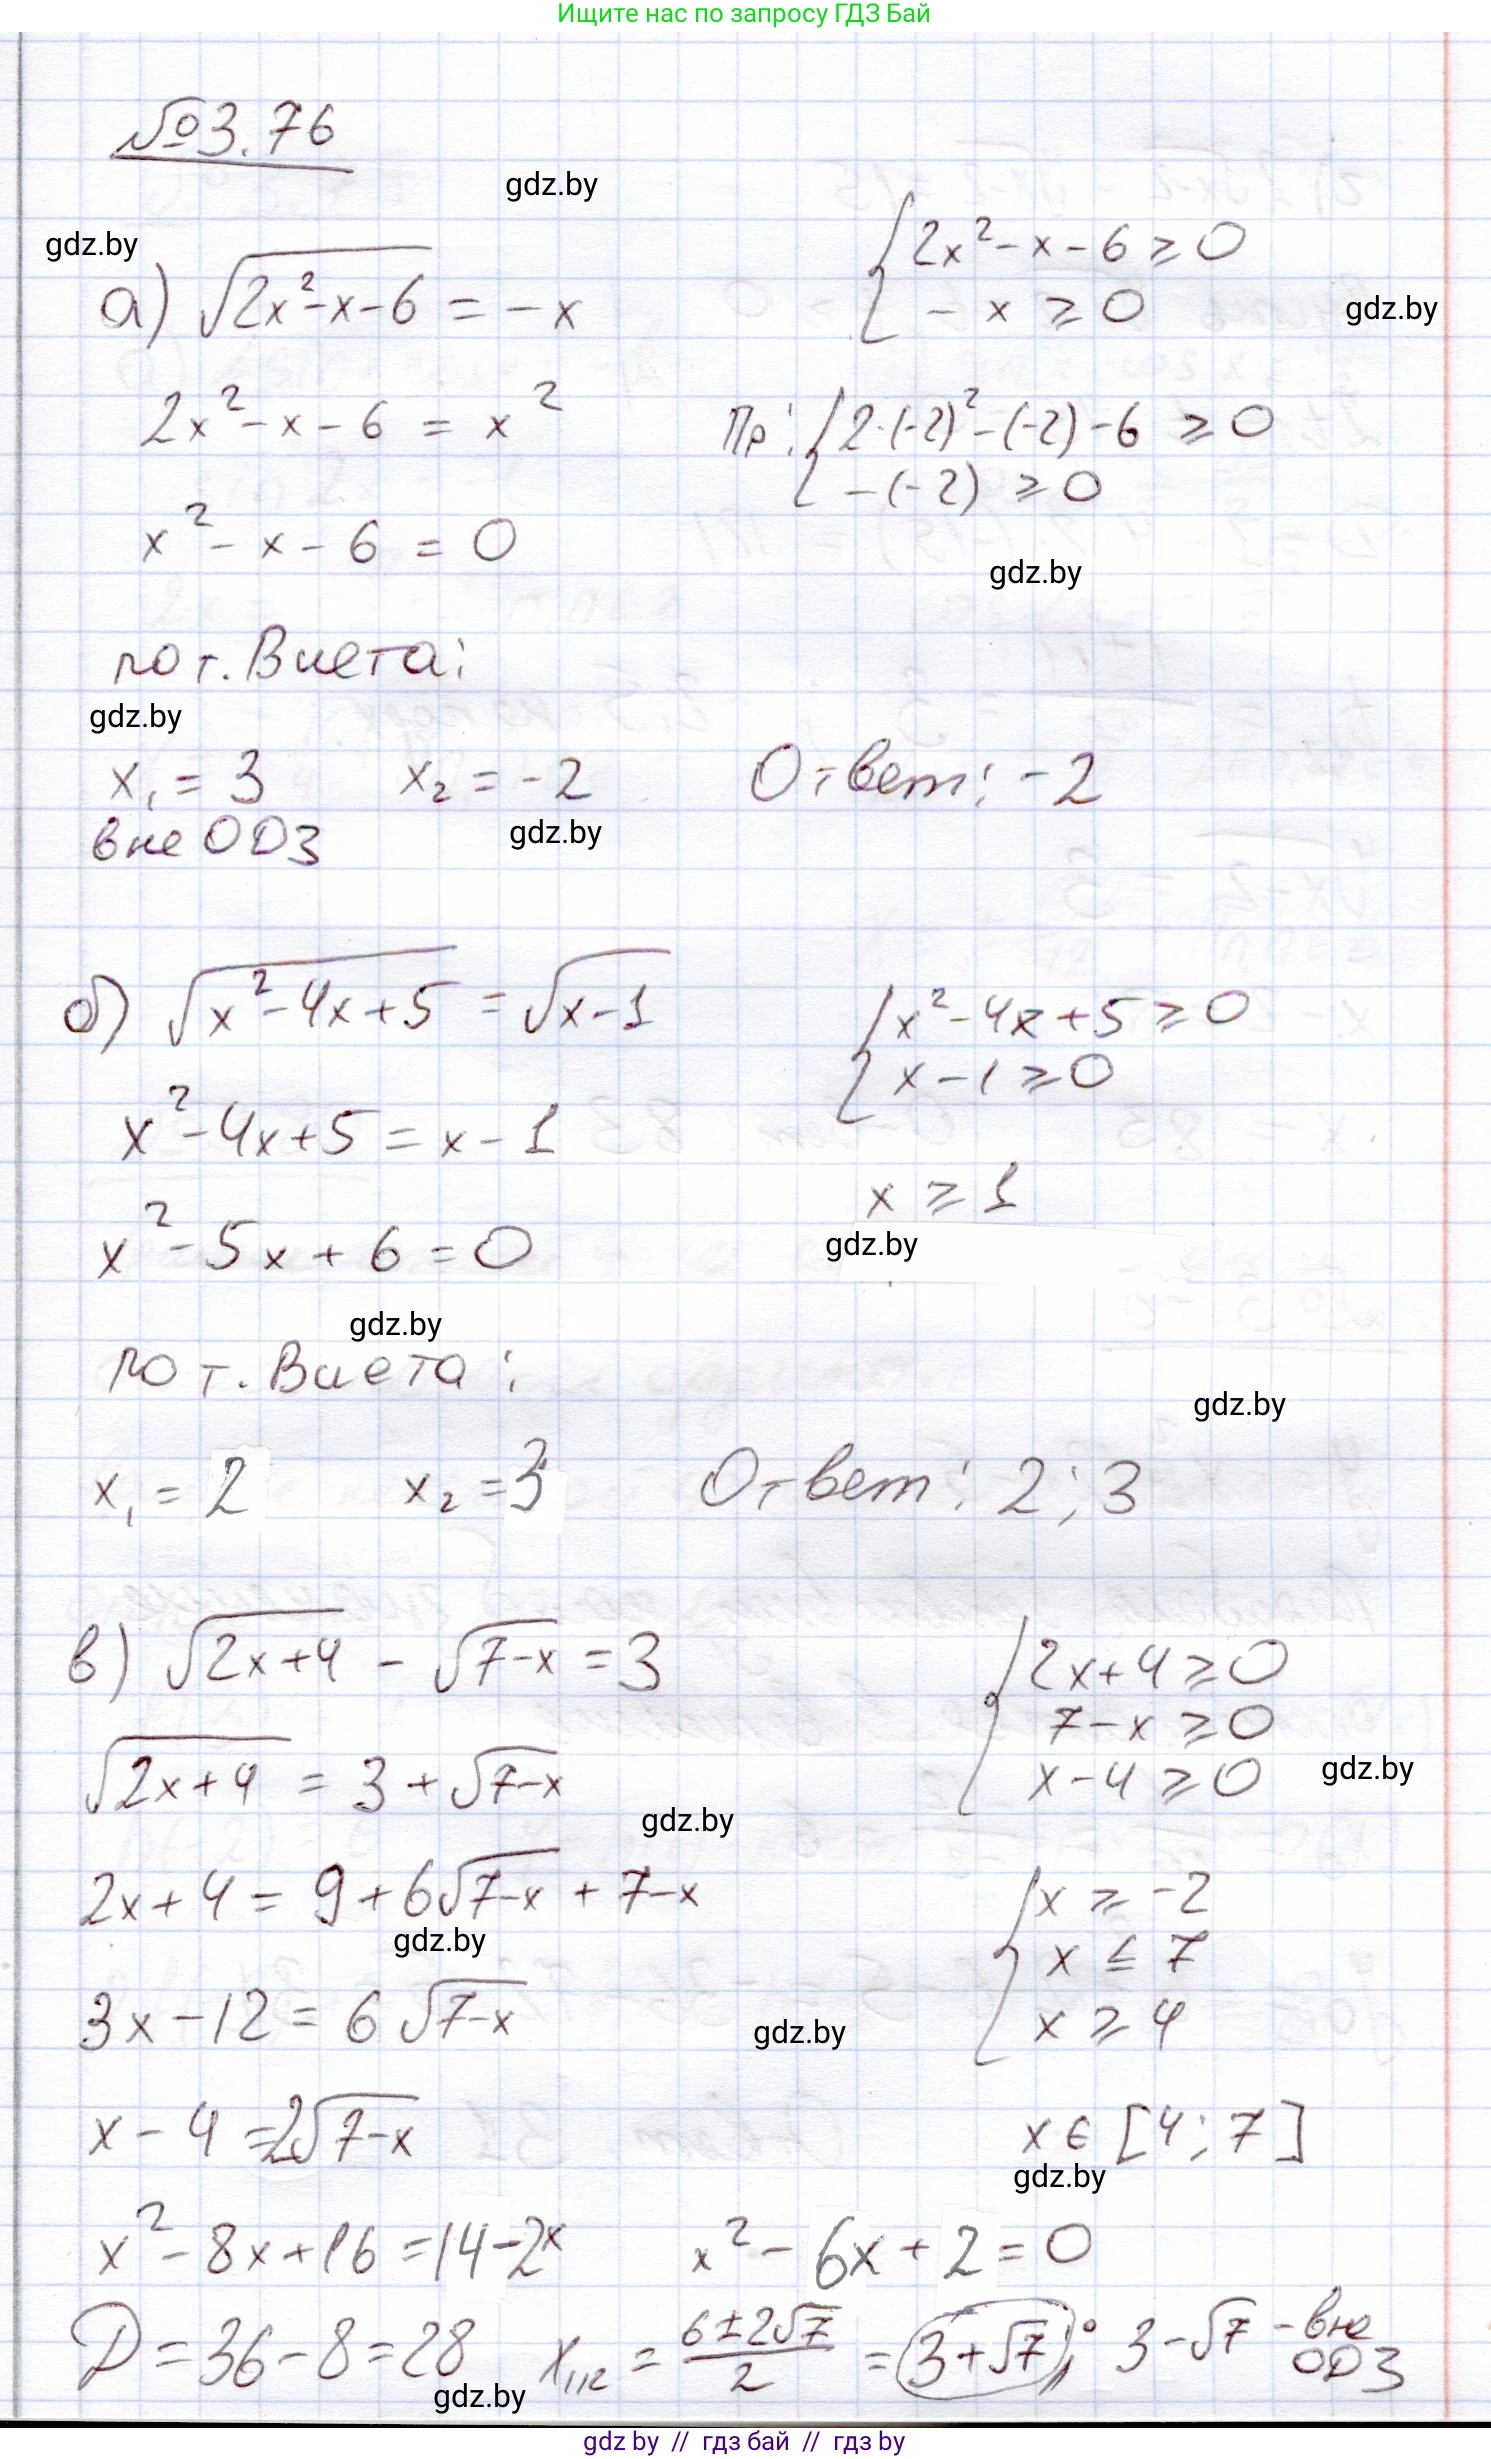 Ищите нас по запросу ГДЗ Бай
№3.76
gdz.by
gdz.by
а) √(2x²-x-6) = -x
{ 2x²-x-6 ≥ 0
-x ≥ 0
gdz.by
2x²-x-6 = x²
Пр: { 2·(-2)²-(-2)-6 ≥ 0
-(-2) ≥ 0
x²-x-6 = 0
gdz.by
по т. Виета:
gdz.by
x₁ = 3 x₂ = -2 Ответ: -2
вне ОДЗ
gdz.by
б) √(x²-4x+5) = √(x-1)
{ x²-4x+5 ≥ 0
x-1 ≥ 0
x²-4x+5 = x-1
x ≥ 1
gdz.by
x²-5x+6 = 0
gdz.by
по т. Виета:
gdz.by
x₁ = 2 x₂ = 3 Ответ: 2; 3
в) √(2x+4) - √(7-x) = 3
{ 2x+4 ≥ 0
7-x ≥ 0
x-4 ≥ 0
gdz.by
√(2x+4) = 3 + √(7-x)
gdz.by
2x+4 = 9+6√(7-x) + 7-x
{ x ≥ -2
x ≤ 7
x ≥ 4
gdz.by
3x-12 = 6√(7-x)
gdz.by
x-4 = 2√(7-x)
x ∈ [4; 7]
gdz.by
x²-8x+16 = 14-2x x²-6x+2 = 0
D = 36-8 = 28 x₁,₂ = (6±2√7)/2 = 3+√7; 3-√7 - вне ОДЗ
gdz.by
gdz by // гдз бай // гдз by